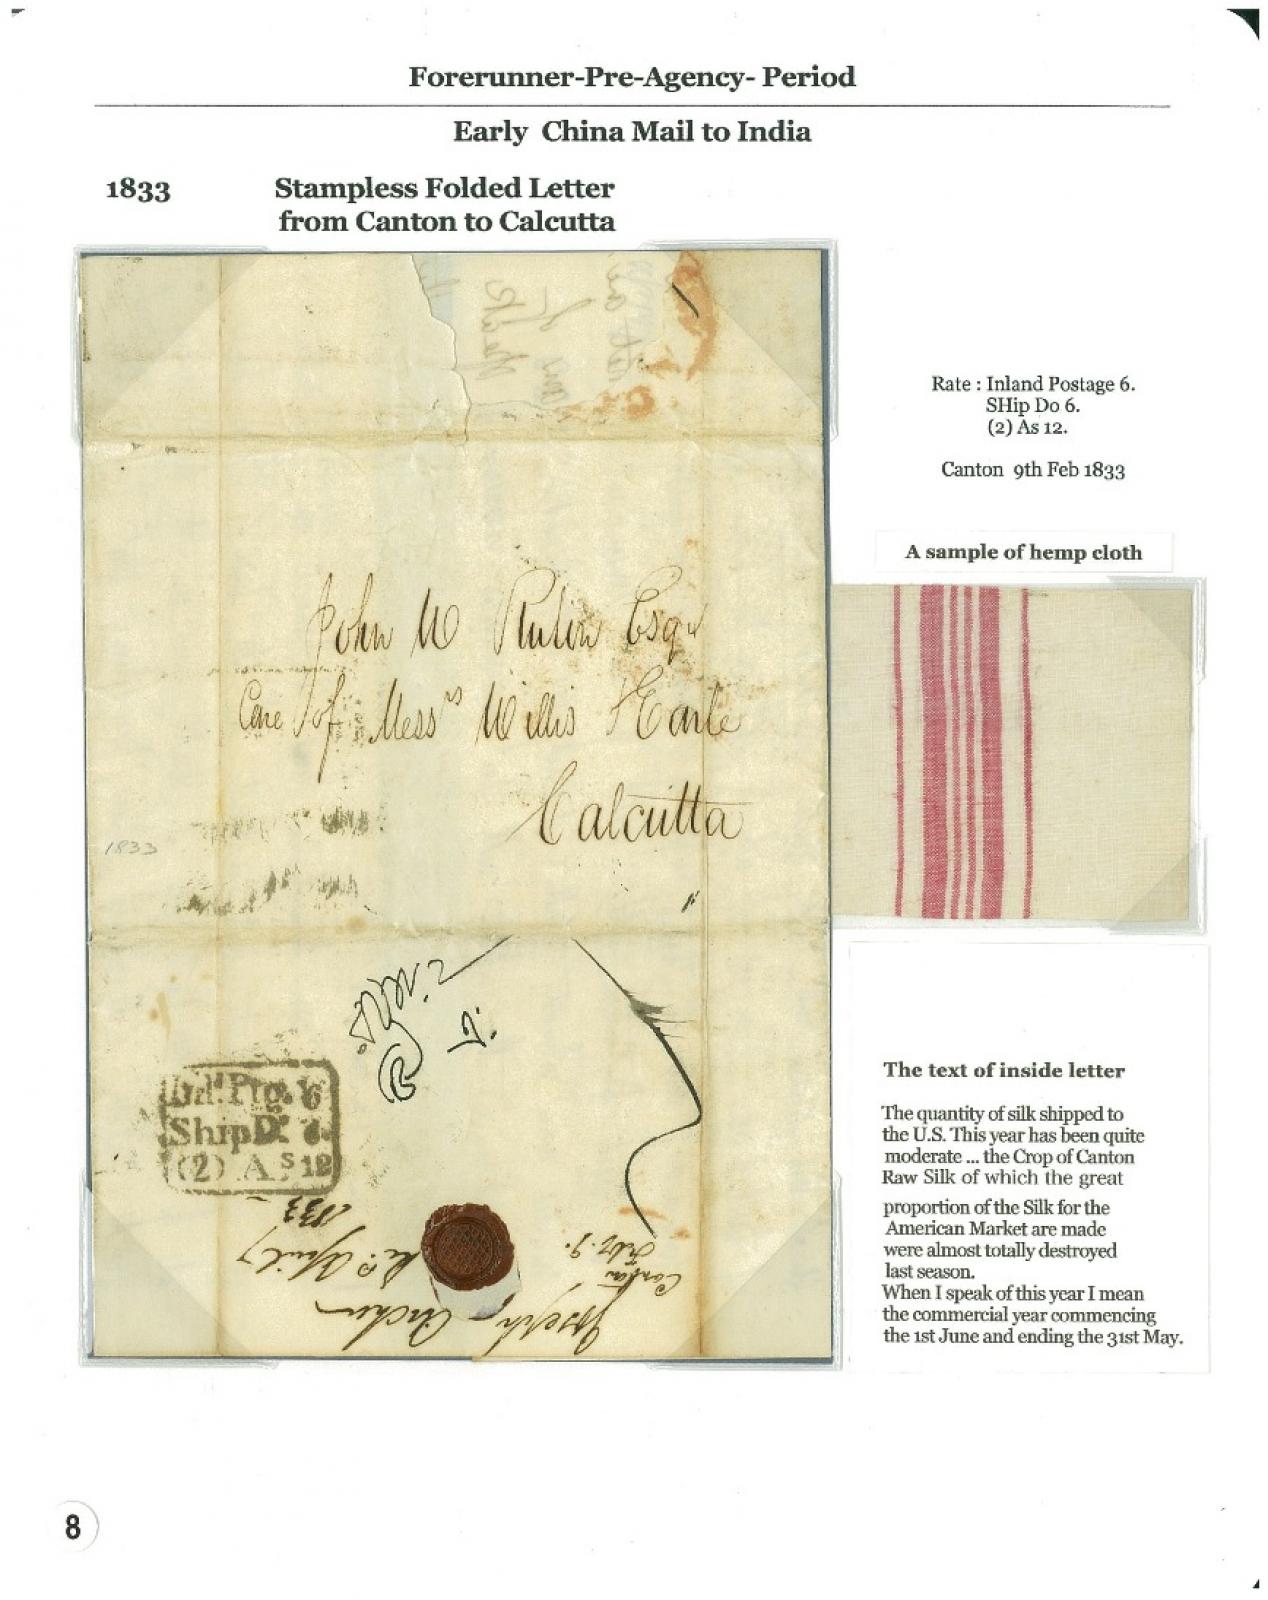 Forerunner-Pre-Agency- Period
Early China Mail to India
1833 Stampless Folded Letter
from Canton to Calcutta
Rate : Inland Postage 6.
SHip Do 6.
(2) As 12.
Canton 9th Feb 1833
A sample of hemp cloth
John W Esqr
Care of Messrs Willis & Earle
Calcutta
1833
Ind. Ptg. 6
Ship Do. 6.
(2) As 12
Joseph Archer
Canton
Feb. 9.
Re. April 7
1833
The text of inside letter
The quantity of silk shipped to
the U.S. This year has been quite
moderate ... the Crop of Canton
Raw Silk of which the great
proportion of the Silk for the
American Market are made
were almost totally destroyed
last season.
When I speak of this year I mean
the commercial year commencing
the 1st June and ending the 31st May.
8